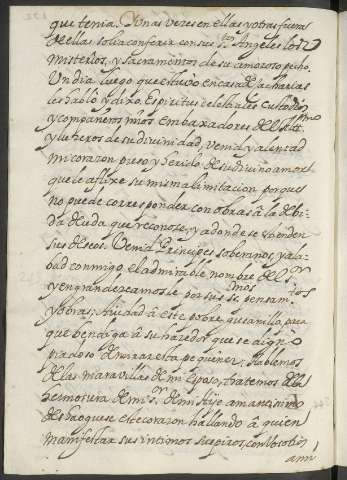 que tenia. Unas veces en ellas y otras fuera
de ellas solia conferir con sus S.tos Angeles los
misterios, y sacramentos de su amoroso pecho.
Un dia luego que estubo en casa de Zacharias
les hablo y dixo. Espiritus celestiales custodios
y compañeros mios embaxadores del Alt.mo
y luzeros de su divinidad, venid y alentad
mi corazon preso y herido de su divino amor
que le aflixe su misma limitacion porque
no puede corresponder con obras â la debi-
da deuda que reconose, y adonde se extienden
sus deseos. Venid Principes soberanos y ala-
bad conmigo, el admirable nombre del S.r
y engrandezcamosle por sus ss.mos pensam.tos
y obras; Ayudad â este pobre gusanillo, para
que bendiga â su hazedor que se digna
piadoso de mirar esta pequeñez. Hablemos
de las maravillas de mi Esposo, tratemos de la
hermosura de mi S.r de mi Hijo amantisimo
deshaoguese el corazon hallando â quien
manifestar sus intimos suspiros, con vosotros
ami